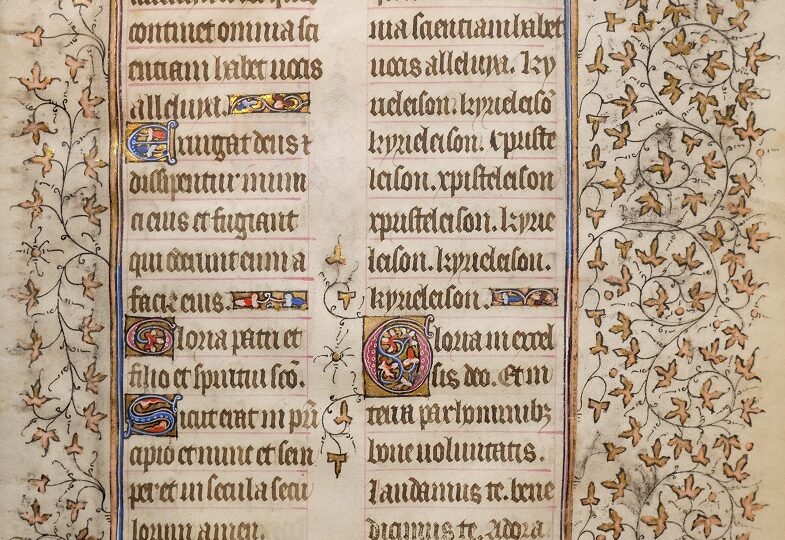 continet omnia sci
entiam habet uocis
alleluya.
Exurgat deus ⁊
dissipentur inimi
ci eius et fugiant
qui oderunt eum a
facie eius.
Gloria patri et
filio et spiritui scō.
Sicut erat in pn̄
cipio et nunc et sem
per et in secula secu
lorum amen.
nia scientiam habet
uocis alleluya. ky
rieleison. kyrieleisō
kyrieleison. xpriste
leison. xpristeleison
xpristeleison. kyrie
leison. kyrieleison.
kyrieleison.
Gloria in excel
sis deo. Et in
terra pax hominibꝫ
bone uoluntatis.
Laudamus te. bene
dicimus te. Adora